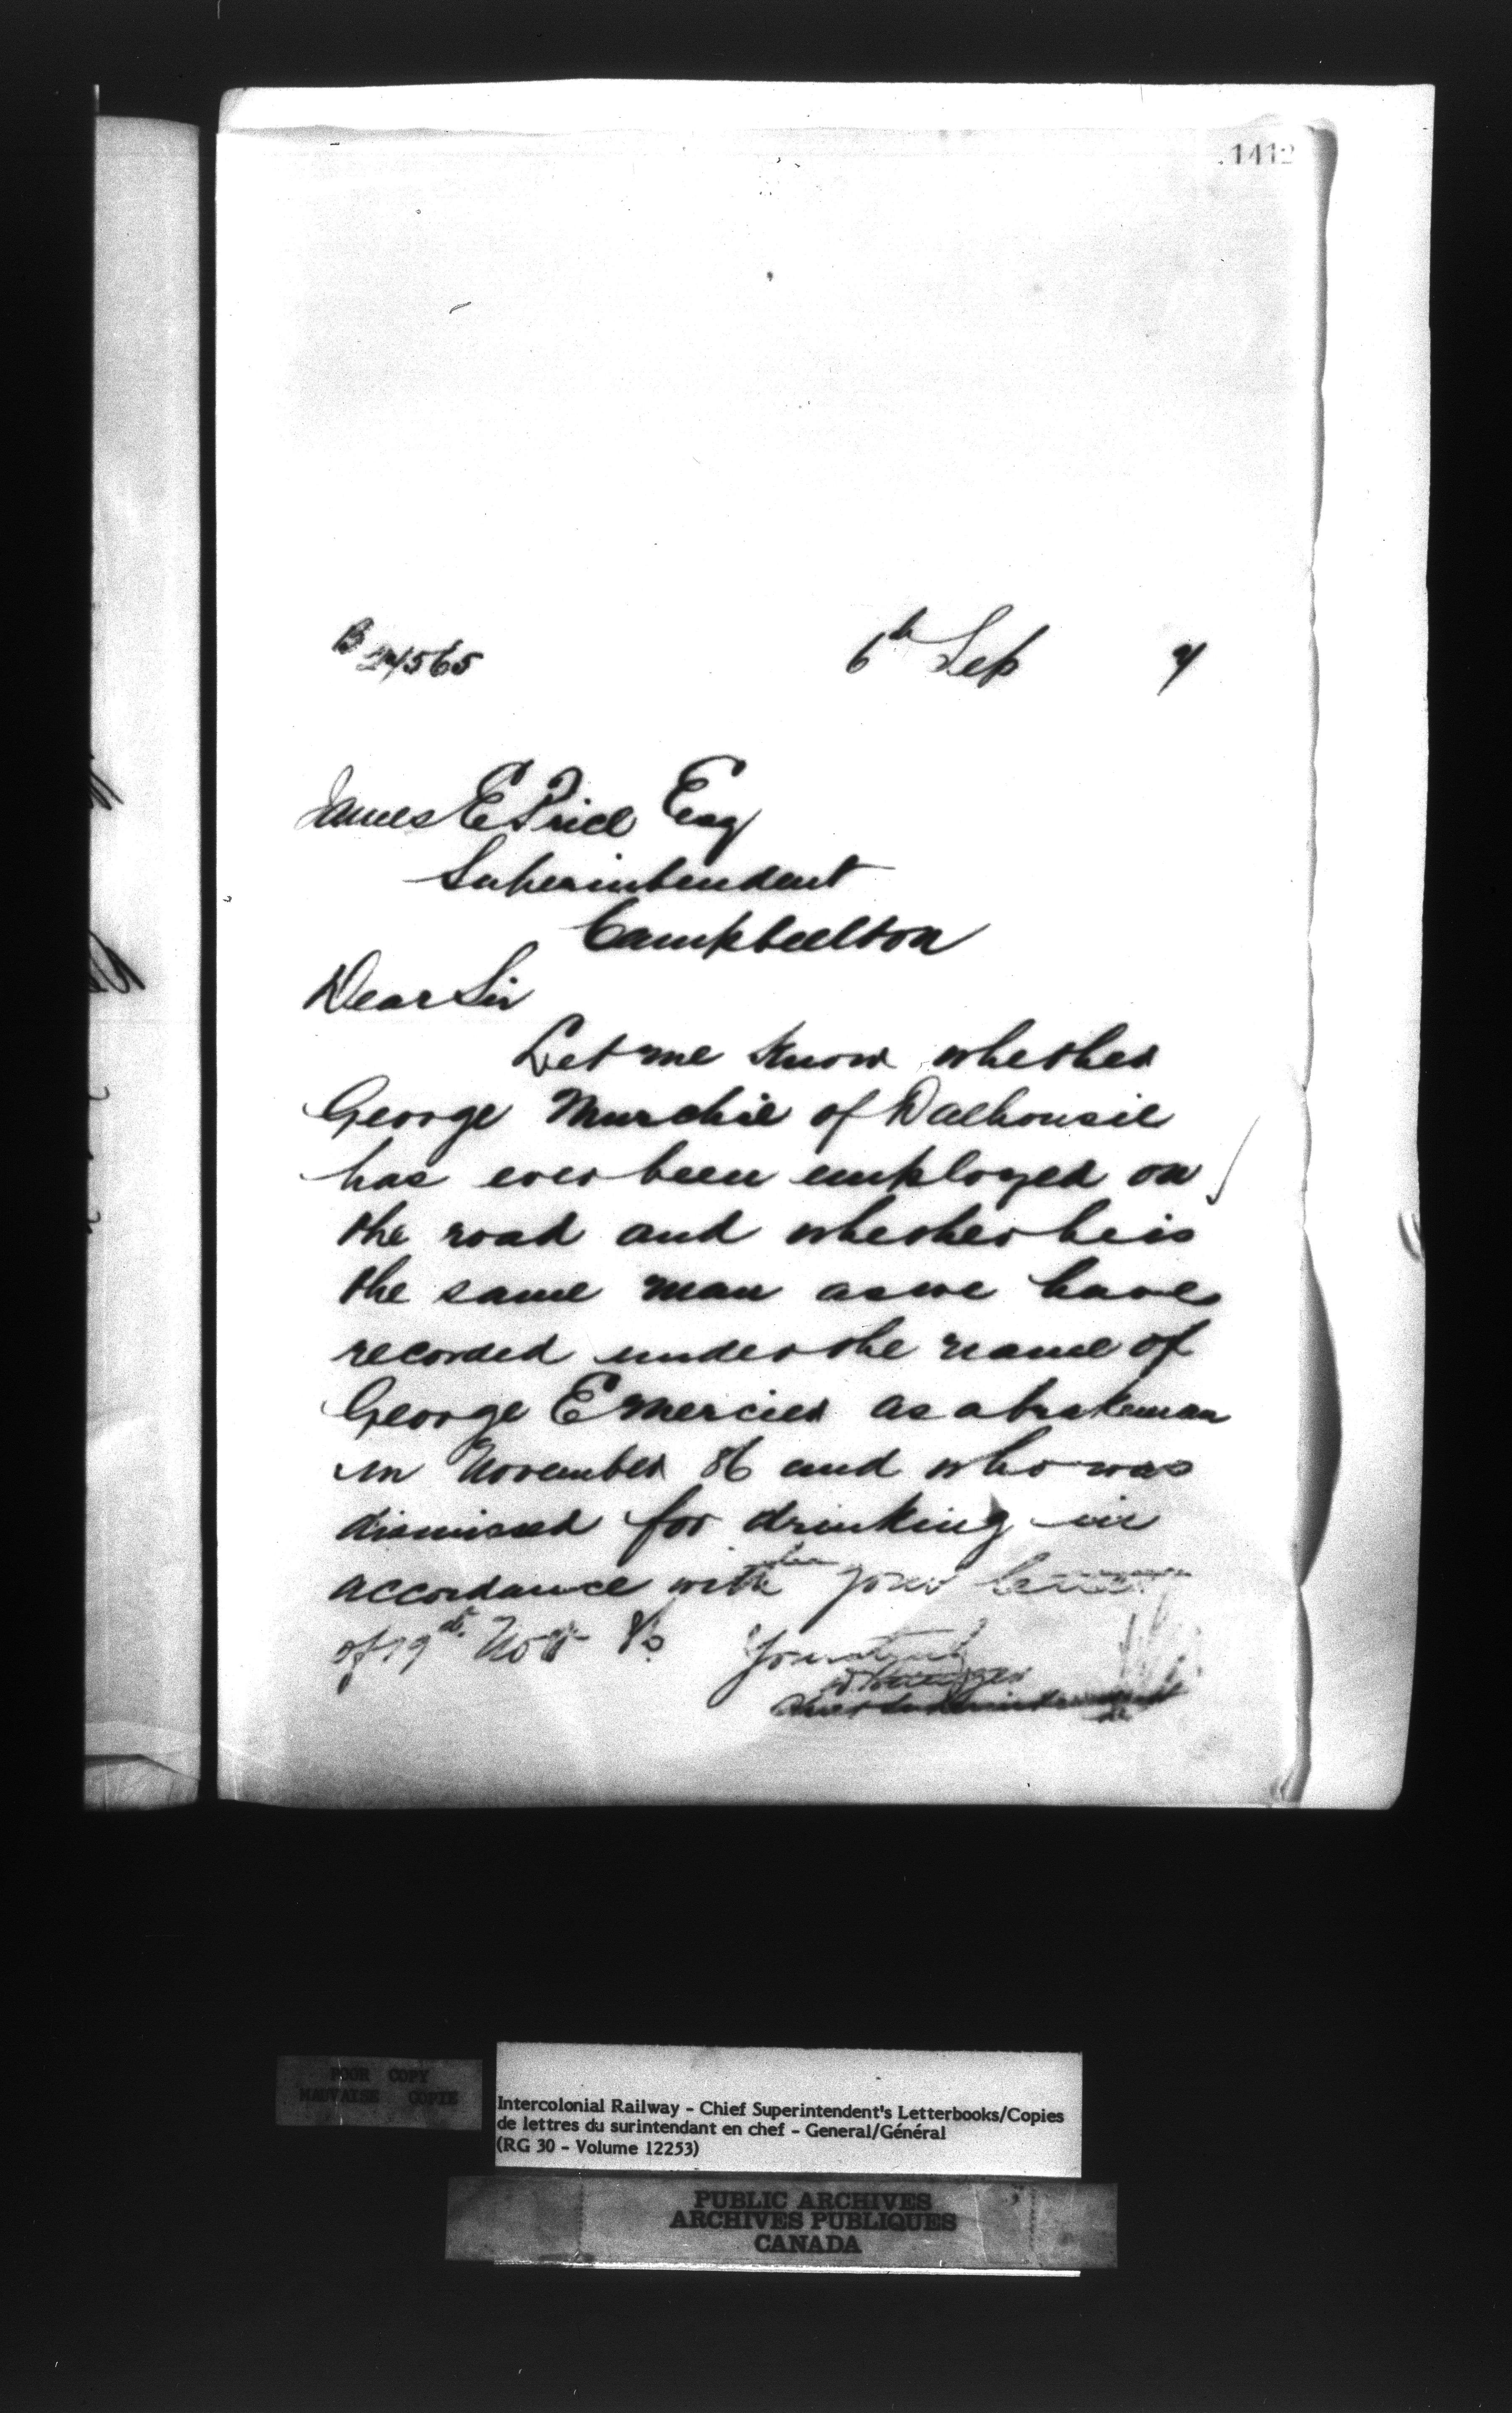 1412
B 24565 6th Sep
James E Price Esq
Superintendent
Campbellton
Dear Sir
Let me know whether
George Murchie of Dalhousie
has ever been employed on
the road and whether he is
the same man as we have
recorded under the name of
George E Mercier as a brakeman
in November 86 and who was
dismissed for drinking in
accordance with your letter
of 19th Nov 86 Yours truly
Chief Superintendent
POOR COPY
MAUVAISE COPIE
Intercolonial Railway - Chief Superintendent's Letterbooks/Copies
de lettres du surintendant en chef - General/Général
(RG 30 - Volume 12253)
PUBLIC ARCHIVES
ARCHIVES PUBLIQUES
CANADA